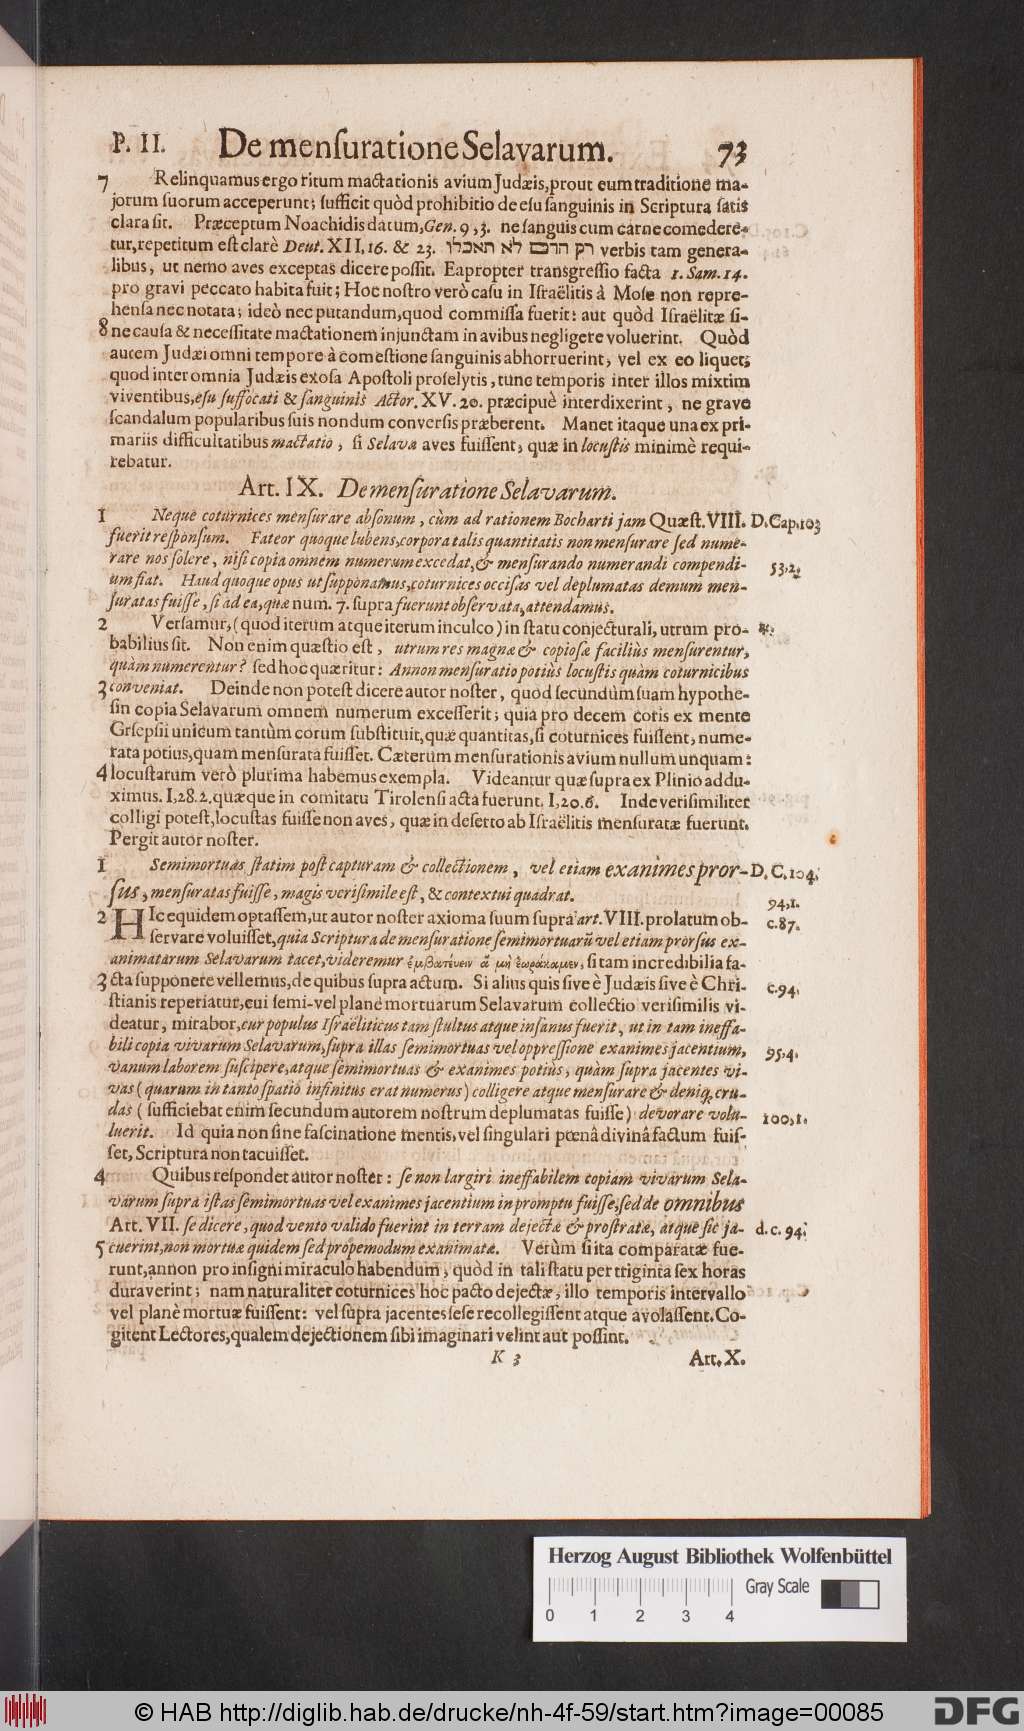 P. II. De menſuratione Selavarum. 73
7 Relinquamus ergo ritum mactationis avium Judæis, prout eum traditione ma-
jorum ſuorum acceperunt; ſufficit quòd prohibitio de eſu ſanguinis in Scriptura ſatis
clara ſit. Præceptum Noachidis datum, Gen. 9, 3. ne ſanguis cum carne comedere-
tur, repetitum eſt clarè Deut. XII, 16. & 23. רק הדם לא תאכלו verbis tam genera-
libus, ut nemo aves exceptas dicere poſſit. Eapropter transgreſſio facta 1. Sam. 14.
pro gravi peccato habita fuit; Hoc noſtro verò caſu in Iſraëlitis à Moſe non repre-
henſa nec notata; ideò nec putandum, quod commiſſa fuerit: aut quòd Iſraëlitæ ſi-
8 ne cauſa & neceſſitate mactationem injunctam in avibus negligere voluerint. Quòd
autem Judæi omni tempore à comeſtione ſanguinis abhorruerint, vel ex eo liquet;
quod inter omnia Judæis exoſa Apoſtoli proſelytis, tunc temporis inter illos mixtim
viventibus, eſu ſuffocati & ſanguinis Actor. XV. 20. præcipuè interdixerint, ne grave
ſcandalum popularibus ſuis nondum converſis præberent. Manet itaque una ex pri-
mariis difficultatibus mactatio, ſi Selavæ aves fuiſſent, quæ in locuſtis minimè requi-
rebatur.
Art. IX. De menſuratione Selavarum.
1 Neque coturnices menſurare abſonum, cùm ad rationem Bocharti jam Quæſt. VIII. D. Cap. 103
fuerit reſponſum. Fateor quoque lubens, corpora talis quantitatis non menſurare ſed nume-
rare nos ſolere, niſi copia omnem numerum excedat, & menſurando numerandi compendi- 53,2.
um fiat. Haud quoque opus ut ſupponamus, coturnices occiſas vel deplumatas demum men-
ſuratas fuiſſe, ſi ad ea, quæ num. 7. ſupra fuerunt obſervata, attendamus.
2 Verſamur, (quod iterum atque iterum inculco) in ſtatu conjecturali, utrum pro-
babilius ſit. Non enim quæſtio eſt, utrum res magnæ & copioſæ faciliùs menſurentur,
quàm numerentur? ſed hoc quæritur: Annon menſuratio potiùs locuſtis quàm coturnicibus
3 conveniat. Deinde non poteſt dicere autor noſter, quod ſecundùm ſuam hypothe-
ſin copia Selavarum omnem numerum exceſſerit; quia pro decem coris ex mente
Grſepſii unicum tantùm corum ſubſtituit, quæ quantitas, ſi coturnices fuiſſent, nume-
rata potius, quam menſurata fuiſſet. Cæterum menſurationis avium nullum unquam:
4 locuſtarum verò plurima habemus exempla. Videantur quæ ſupra ex Plinio addu-
ximus. I, 28. 2. quæque in comitatu Tirolenſi acta fuerunt. I, 20. 6. Inde veriſimiliter
colligi poteſt, locuſtas fuiſſe non aves, quæ in deſerto ab Iſraëlitis menſuratæ fuerunt.
Pergit autor noſter.
1 Semimortuas ſtatim poſt capturam & collectionem, vel etiam exanimes pror- D. C. 104.
ſus, menſuratas fuiſſe, magis veriſimile eſt, & contextui quadrat. 94,1.
2 HIc equidem optaſſem, ut autor noſter axioma ſuum ſupra art. VIII. prolatum ob- c. 87.
ſervare voluiſſet, quia Scriptura de menſuratione ſemimortuarũ vel etiam prorſus ex-
animatarum Selavarum tacet, videremur ἐμβατέυειν ἃ μὴ ἑωράκαμεν, ſi tam incredibilia fa-
3 cta ſupponere vellemus, de quibus ſupra actum. Si alius quis ſive è Judæis ſive è Chri- c. 94.
ſtianis reperiatur, cui ſemi-vel planè mortuarum Selavarum collectio veriſimilis vi-
deatur, mirabor, cur populus Iſraëliticus tam ſtultus atque inſanus fuerit, ut in tam ineffa-
bili copia vivarum Selavarum, ſupra illas ſemimortuas vel oppreſſione exanimes jacentium, 95.4.
vanum laborem ſuſcipere, atque ſemimortuas & exanimes potiùs, quàm ſupra jacentes vi-
vas (quarum in tanto ſpatio infinitus erat numerus) colligere atque menſurare & deniq; cru-
das (ſufficiebat enim ſecundum autorem noſtrum deplumatas fuiſſe) devorare volu- 100,1.
luerit. Id quia non ſine faſcinatione mentis, vel ſingulari pœnâ divinâ factum fuiſ-
ſet, Scriptura non tacuiſſet.
4 Quibus reſpondet autor noſter: ſe non largiri ineffabilem copiam vivarum Sela-
varum ſupra iſtas ſemimortuas vel exanimes jacentium in promptu fuiſſe, ſed de omnibus
Art. VII. ſe dicere, quod vento valido fuerint in terram dejectæ & proſtratæ, atque ſic ja- d. c. 94.
5 cuerint, non mortuæ quidem ſed propemodum exanimatæ. Verùm ſi ita comparatæ fue-
runt, annon pro inſigni miraculo habendum, quòd in tali ſtatu per triginta ſex horas
duraverint; nam naturaliter coturnices hoc pacto dejectæ, illo temporis intervallo
vel planè mortuæ fuiſſent: vel ſupra jacentes ſeſe recollegiſſent atque avolaſſent. Co-
gitent Lectores, qualem dejectionem ſibi imaginari velint aut poſſint.
K 3 Art. X.
Herzog August Bibliothek Wolfenbüttel
Gray Scale
0 1 2 3 4
© HAB http://diglib.hab.de/drucke/nh-4f-59/start.htm?image=00085
DFG